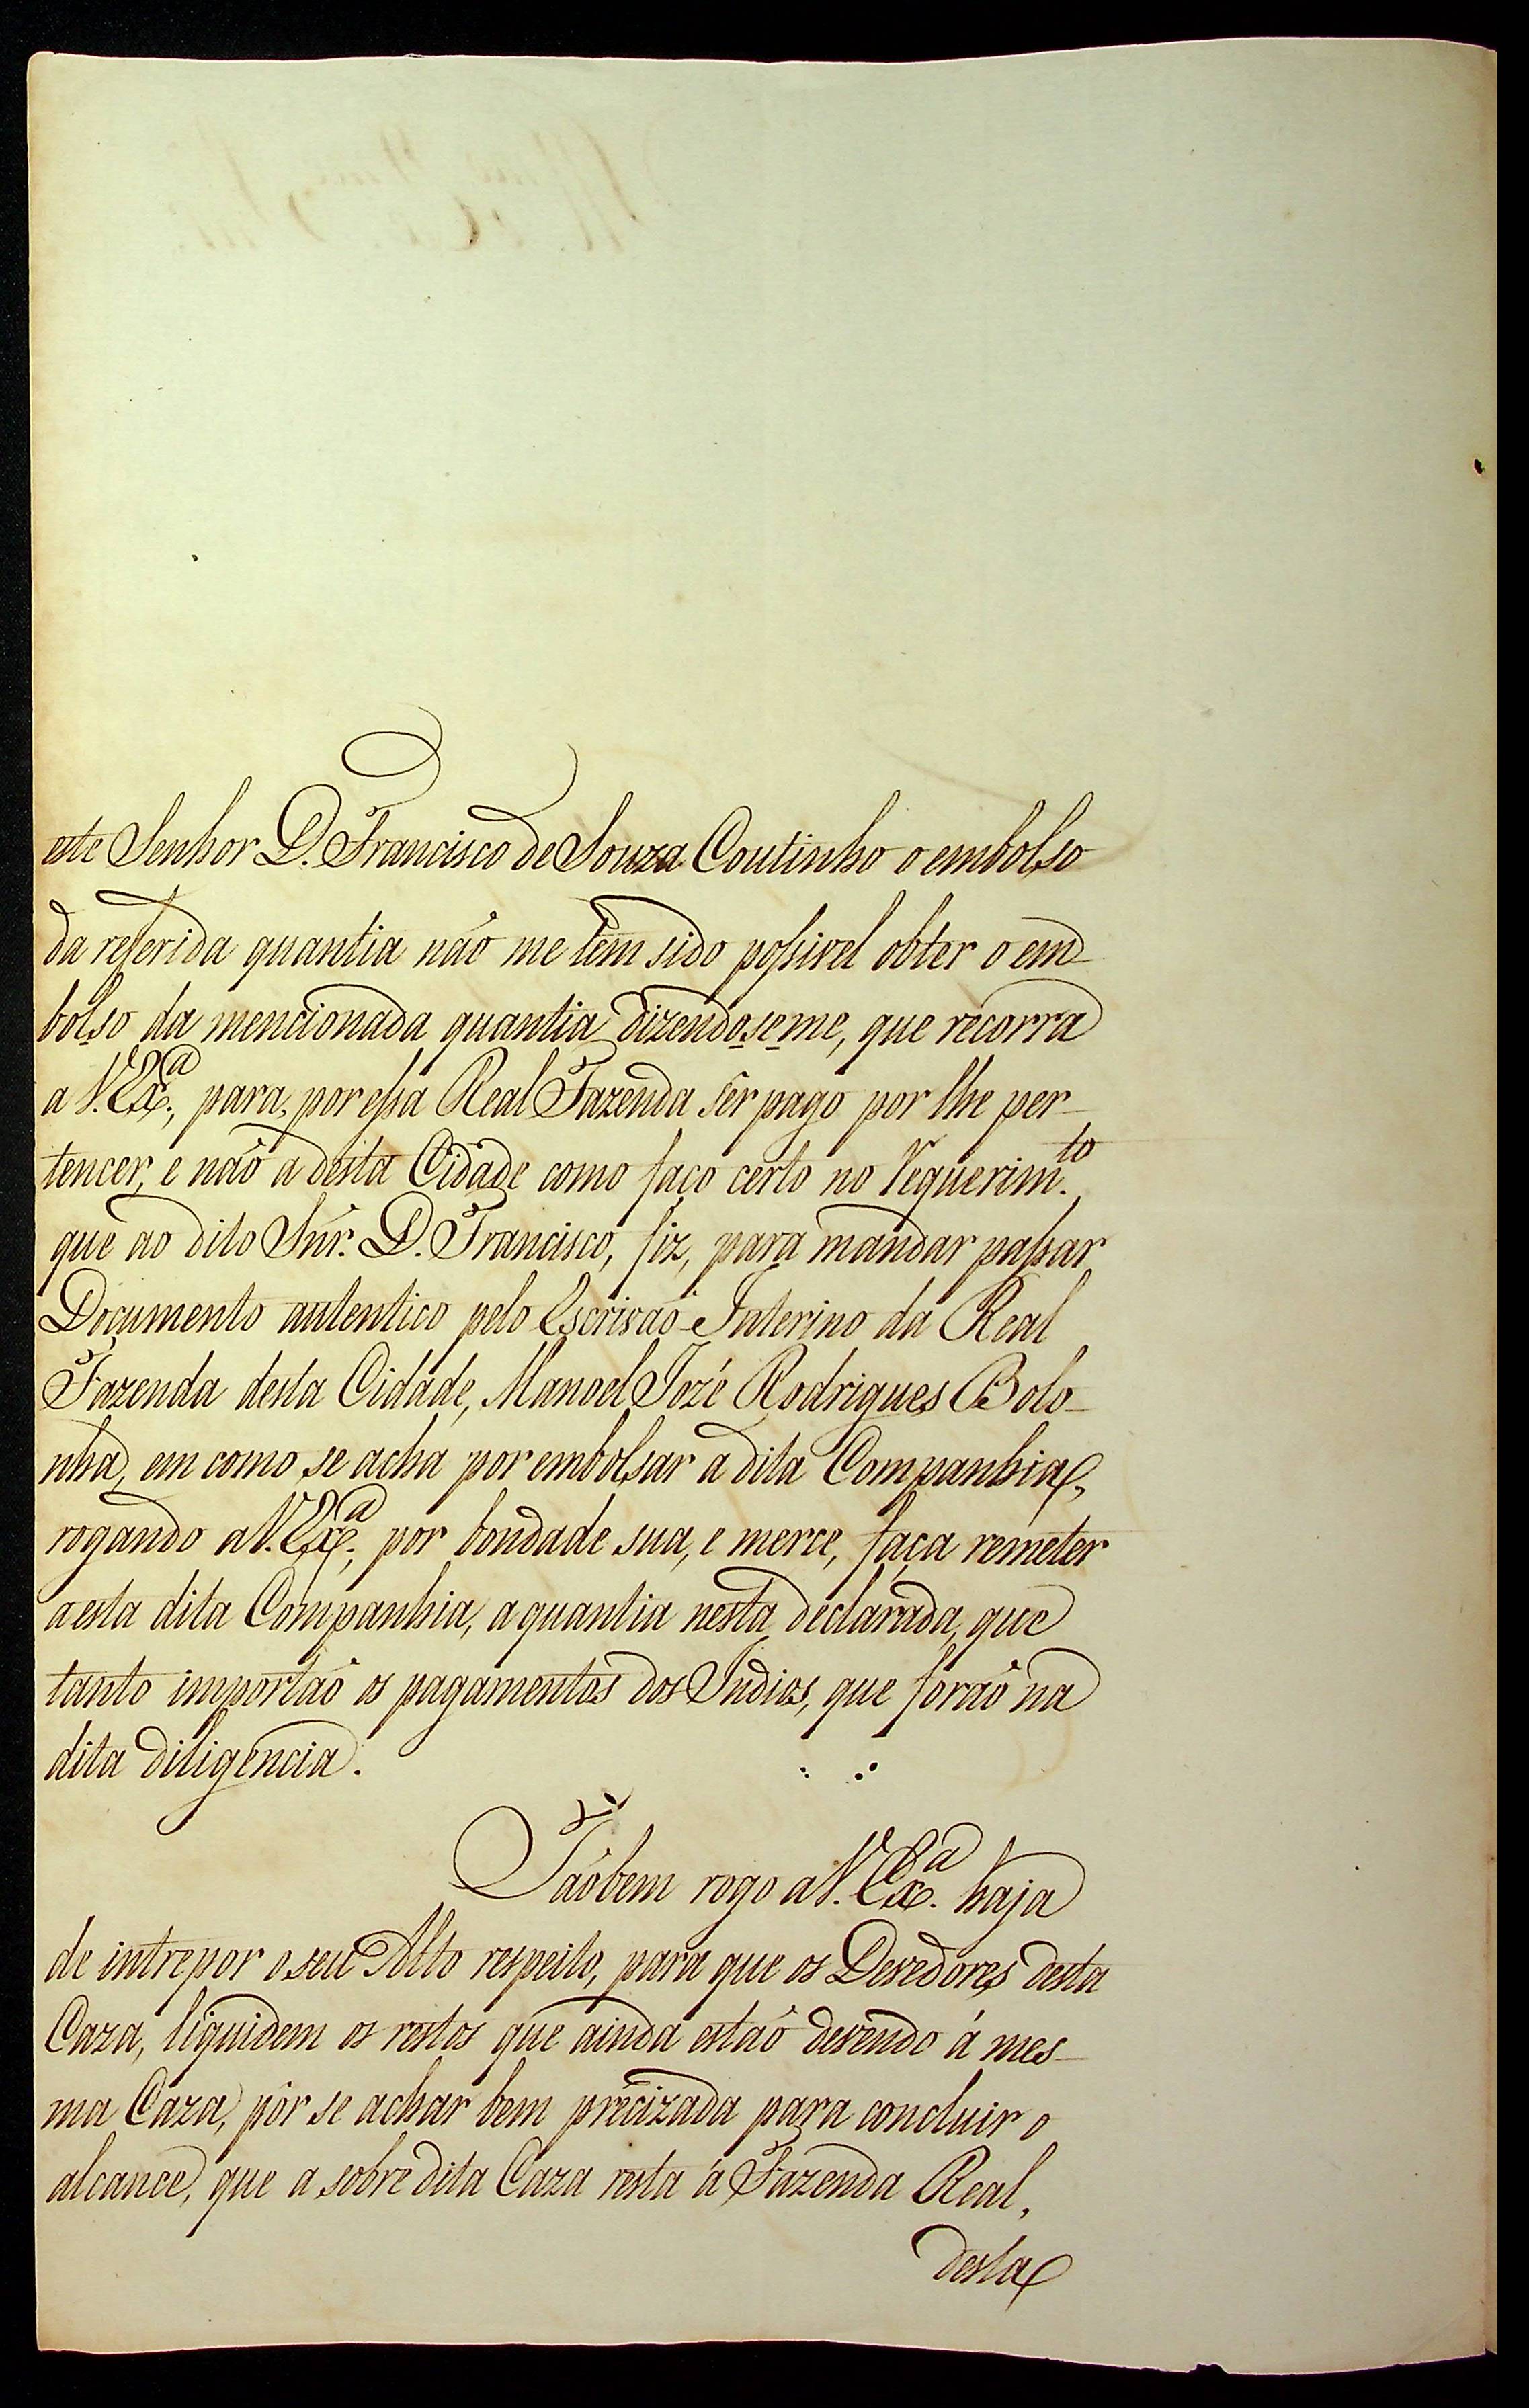 este Senhor D. Francisco de Souza Coutinho o embolso
da referida quantia não me tem sido possivel obter o em-
bolso da mencionada quantia dizendo-se-me, que recorra
a V. Exa., para, por essa Real Fazenda ser pago por lhe per-
tencer, e não a desta Cidade como faço certo no Requerim.to
que ao dito Snr. D. Francisco, fiz, para mandar passar
Documento autentico pelo Escrivão Interino da Real
Fazenda desta Cidade, Manoel Jozé Rodrigues Bolo-
nha, em como se acha por embolsar a dita Companhia,
rogando a V. Exa., por bondade sua, e merce, faça remeter
a esta dita Companhia, a quantia nesta declarada, que
tanto importão os pagamentos dos Indios, que forão na
dita diligencia.
Tãobem rogo a V. Exa. haja
de intrepor o seu Alto respeito, para que os Devedores desta
Caza, liquidem os restos que ainda estão devendo á mes-
ma Caza, por se achar bem precizada para concluir o
alcance, que a sobredita Caza resta á Fazenda Real,
desta